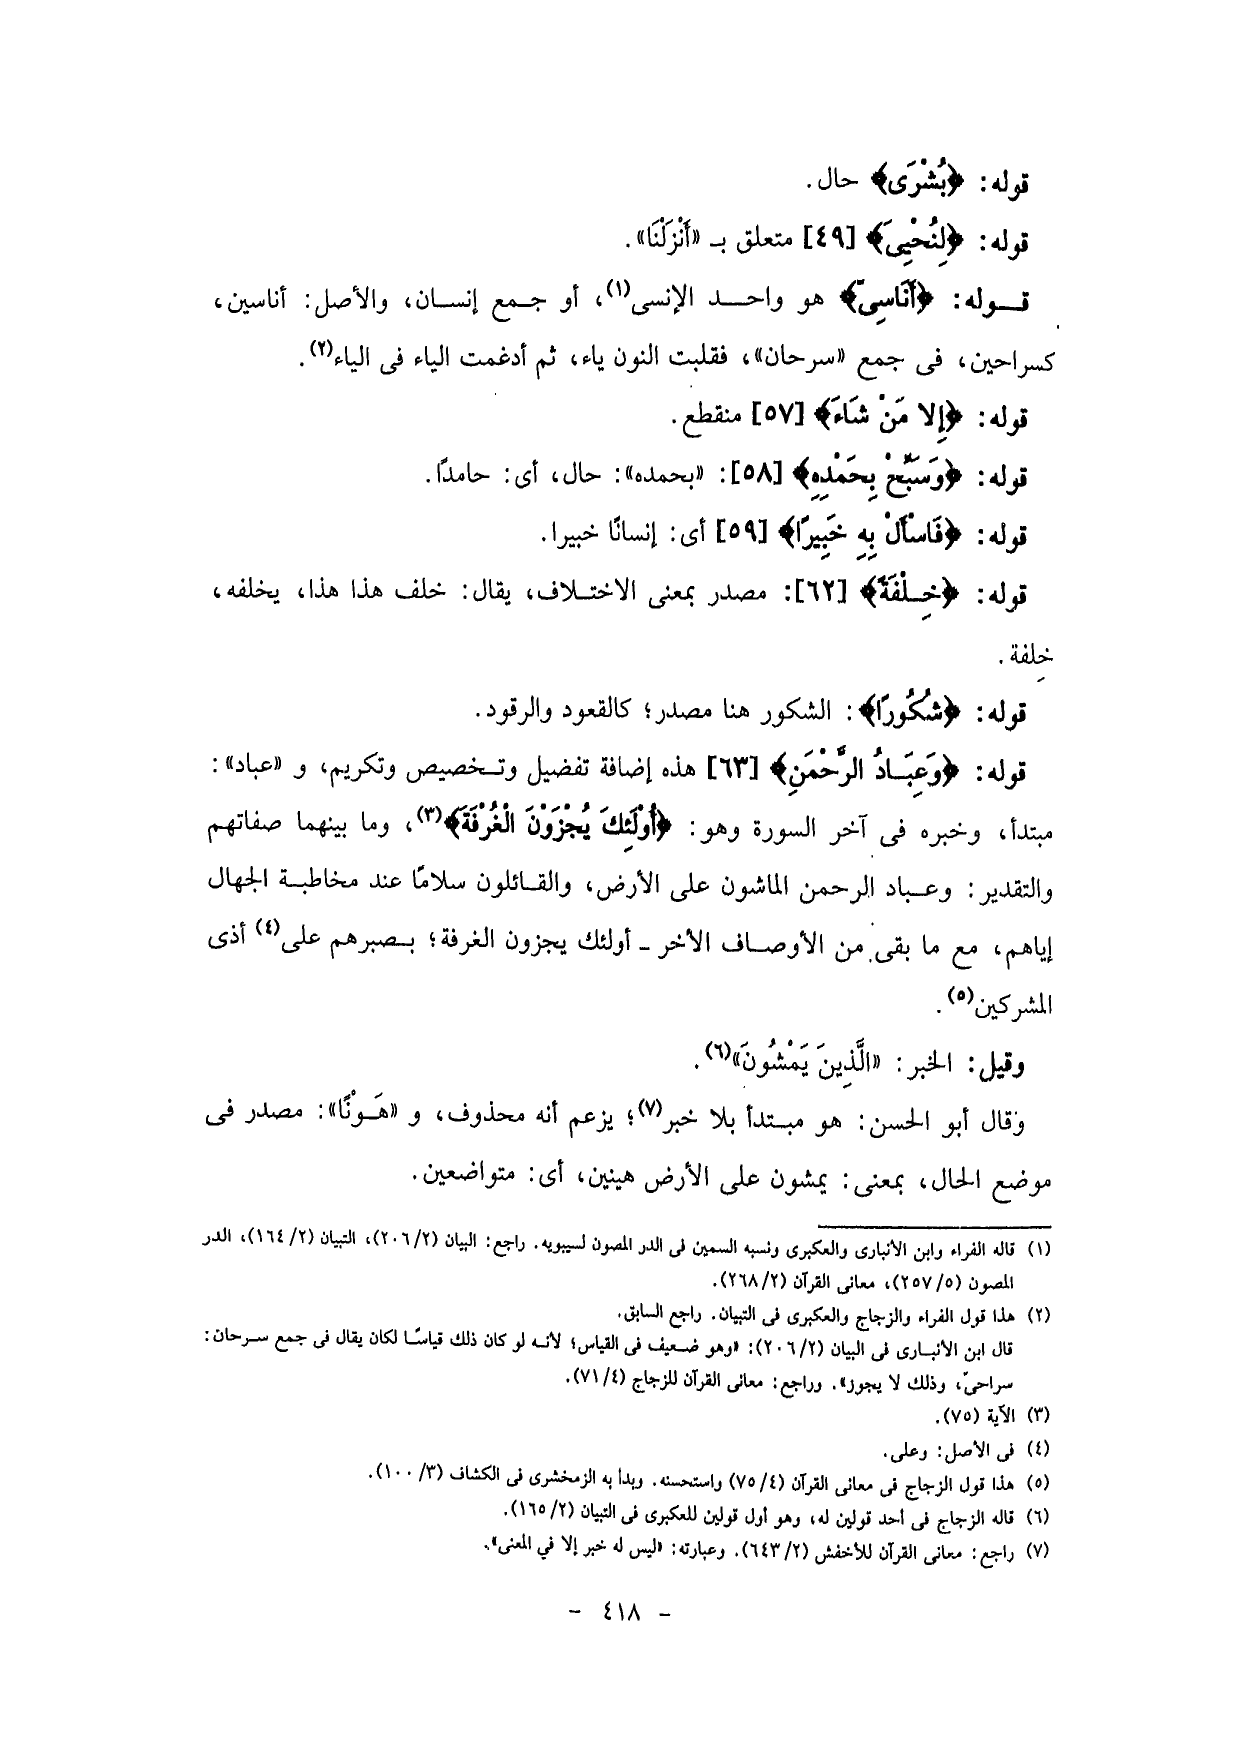 قوله: ﴿بُشْرَى﴾ حال.
قوله: ﴿لِنُحْيِىَ﴾ [٤٩] متعلق بـ «أَنْزَلْنَا».
قوله: ﴿أَنَاسِىَّ﴾ هو واحد الإنسى(١)، أو جمع إنسان، والأصل: أناسين،
كسراحين، فى جمع «سرحان»، فقلبت النون ياء، ثم أدغمت الياء فى الياء(٢).
قوله: ﴿إِلا مَنْ شَاءَ﴾ [٥٧] منقطع.
قوله: ﴿وَسَبِّحْ بِحَمْدِهِ﴾ [٥٨]: «بحمده»: حال، أى: حامدًا.
قوله: ﴿فَاسْأَلْ بِهِ خَبِيرًا﴾ [٥٩] أى: إنسانًا خبيرا.
قوله: ﴿خِلْفَةً﴾ [٦٢]: مصدر بمعنى الاختلاف، يقال: خلف هذا هذا، يخلفه،
خِلفة.
قوله: ﴿شُكُورًا﴾: الشكور هنا مصدر؛ كالقعود والرقود.
قوله: ﴿وَعِبَادُ الرَّحْمَنِ﴾ [٦٣] هذه إضافة تفضيل وتخصيص وتكريم، و «عباد»:
مبتدأ، وخبره فى آخر السورة وهو: ﴿أُوْلَئِكَ يُجْزَوْنَ الْغُرْفَةَ﴾(٣)، وما بينهما صفاتهم
والتقدير: وعباد الرحمن الماشون على الأرض، والقائلون سلامًا عند مخاطبة الجهال
إياهم، مع ما بقى من الأوصاف الأخر ـ أولئك يجزون الغرفة؛ بصبرهم على(٤) أذى
المشركين(٥).
وقيل: الخبر: «الَّذِينَ يَمْشُونَ»(٦).
وقال أبو الحسن: هو مبتدأ بلا خبر(٧)؛ يزعم أنه محذوف، و «هَوْنًا»: مصدر فى
موضع الحال، بمعنى: يمشون على الأرض هينين، أى: متواضعين.
(١) قاله الفراء وابن الأنبارى والعكبرى ونسبه السمين فى الدر المصون لسيبويه. راجع: البيان (٢٠٦/٢)، التبيان (١٦٤/٢)، الدر
المصون (٢٥٧/٥)، معانى القرآن (٢٦٨/٢).
(٢) هذا قول الفراء والزجاج والعكبرى فى التبيان. راجع السابق.
قال ابن الأنبارى فى البيان (٢٠٦/٢): «وهو ضعيف فى القياس؛ لأنه لو كان ذلك قياسًا لكان يقال فى جمع سرحان:
سراحىّ، وذلك لا يجوز». وراجع: معانى القرآن للزجاج (٧١/٤).
(٣) الآية (٧٥).
(٤) فى الأصل: وعلى.
(٥) هذا قول الزجاج فى معانى القرآن (٧٥/٤) واستحسنه. وبدأ به الزمخشرى فى الكشاف (١٠٠/٣).
(٦) قاله الزجاج فى أحد قولين له، وهو أول قولين للعكبرى فى التبيان (١٦٥/٢).
(٧) راجع: معانى القرآن للأخفش (٦٤٣/٢). وعبارته: «ليس له خبر إلا في المعنى».
- ٤١٨ -